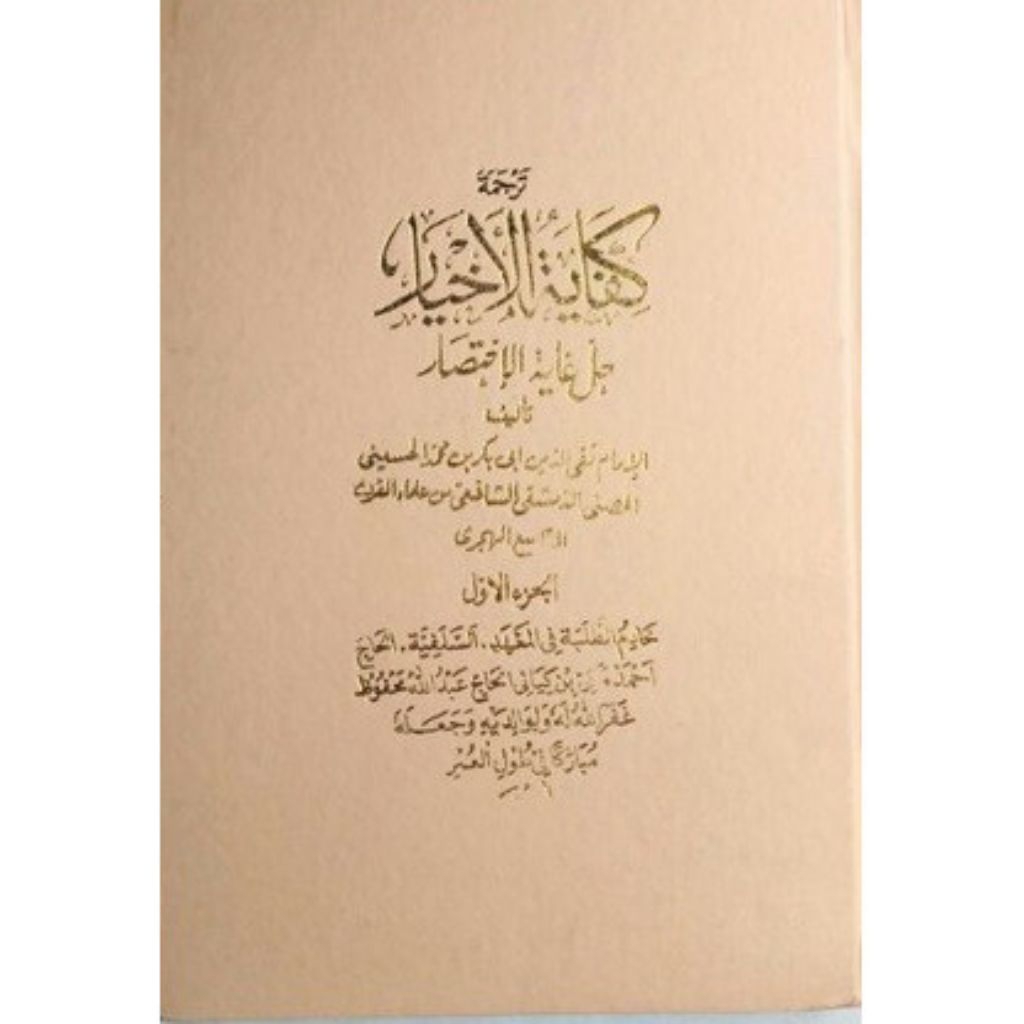 تَرْجَمَة
كِفَايَةُ الْأَخْيَار
حل غاية الإختصار
تأليف
الإمام تقى الدين ابى بكر بن محمد الحسينى
الحصنى الدمشقى الشافعى من علماء القرن
التاسع الهجرى
الجزء الاول
خَادِمُ الطَّلَبَة فِى الْمَعْهَدِ . السَّلَفِيَّة . الحَاجْ
اَحْمَدْ اِبْن كِيَاىْ الحَاجْ عَبْدُ اللهْ مَحْفُوظْ
غَفَرَ اللهُ لَهُ وَلِوَالِدَيْهِ وَجَعَلَهُ
مُبَارَكًا فِى طُولِ الْعُمْر